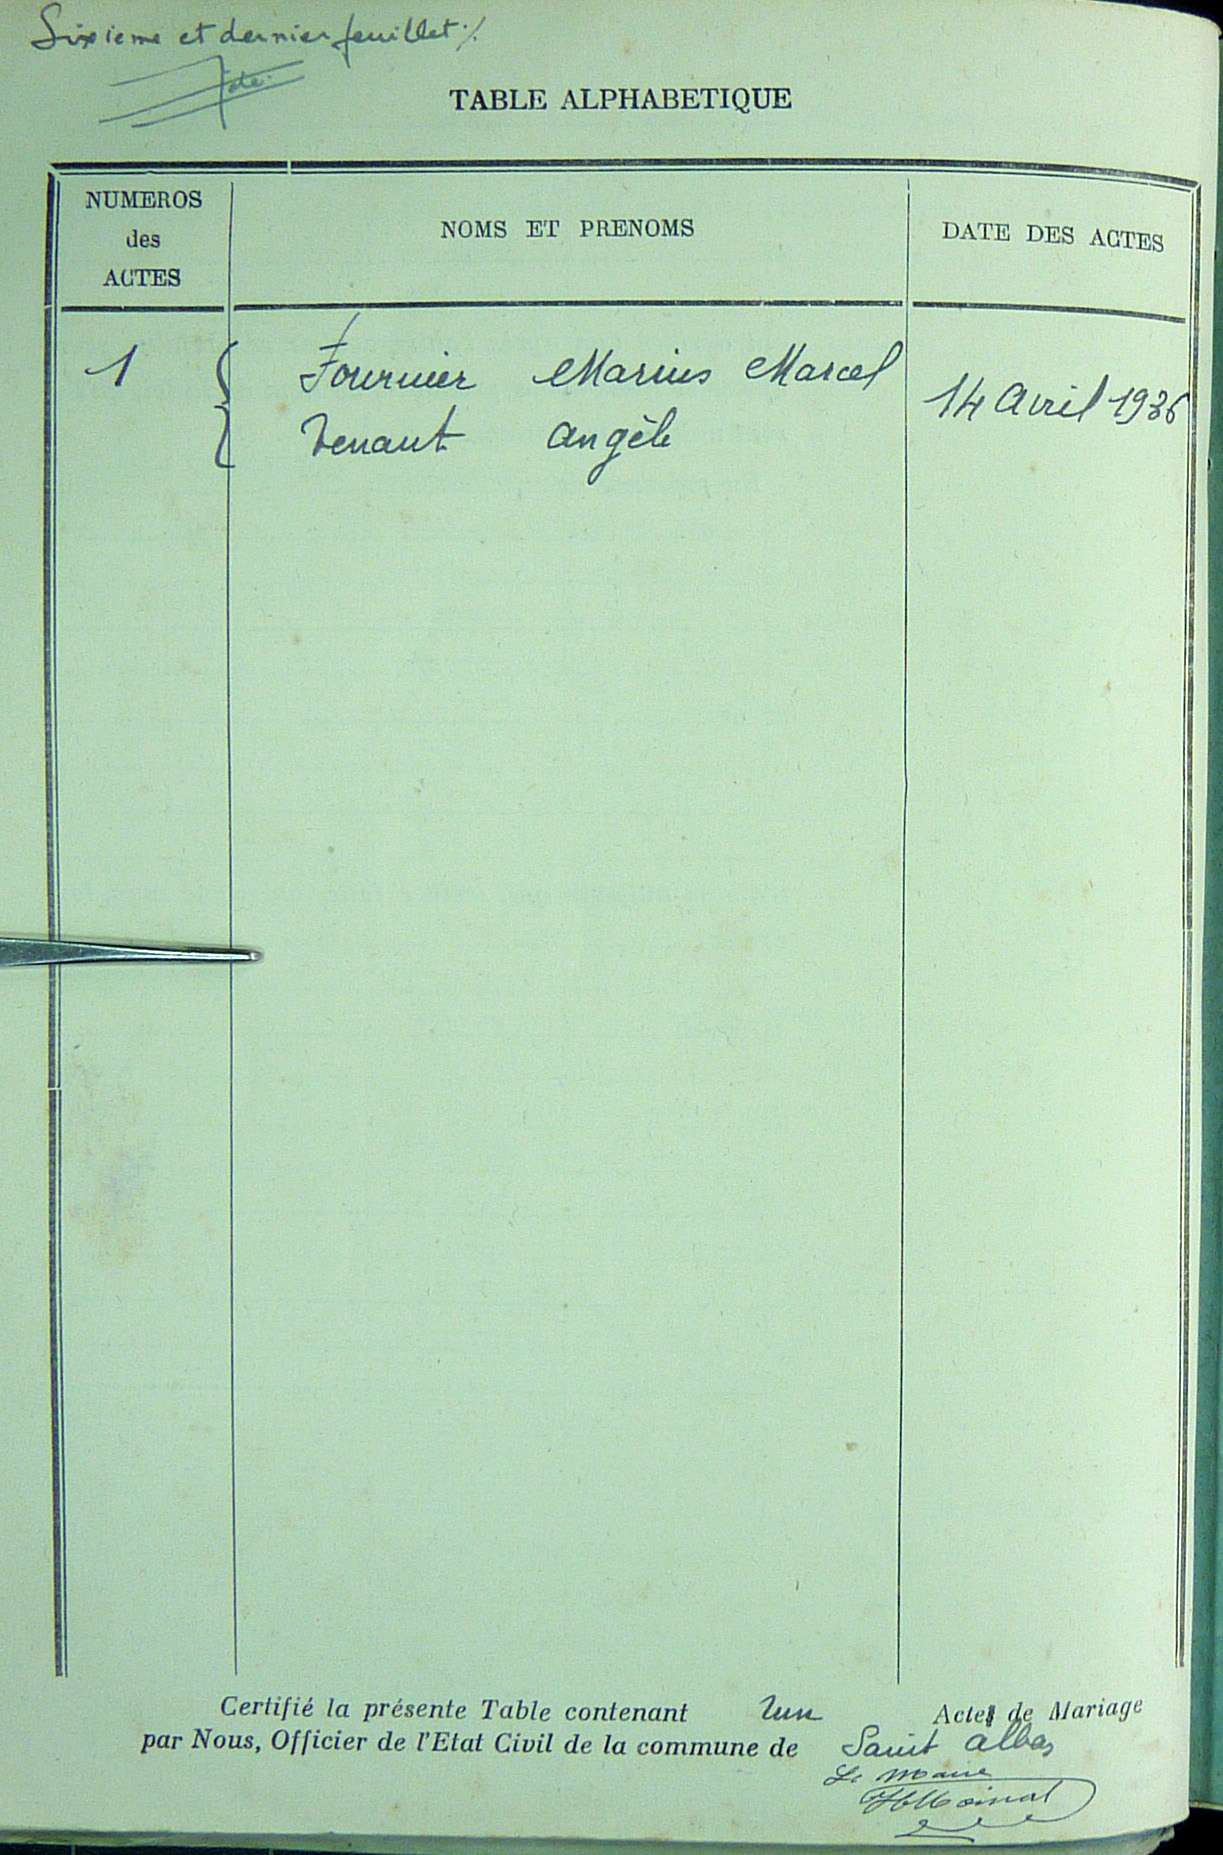 Sixième et dernier feuillet ./.
TABLE ALPHABETIQUE
NUMEROS
des
ACTES
NOMS ET PRENOMS
DATE DES ACTES
1
Fournier Marius Marcel
14 Avril 1936
Tenaut Angèle
Certifié la présente Table contenant un Acte de Mariage
par Nous, Officier de l'Etat Civil de la commune de Saint Alban
Le Maire